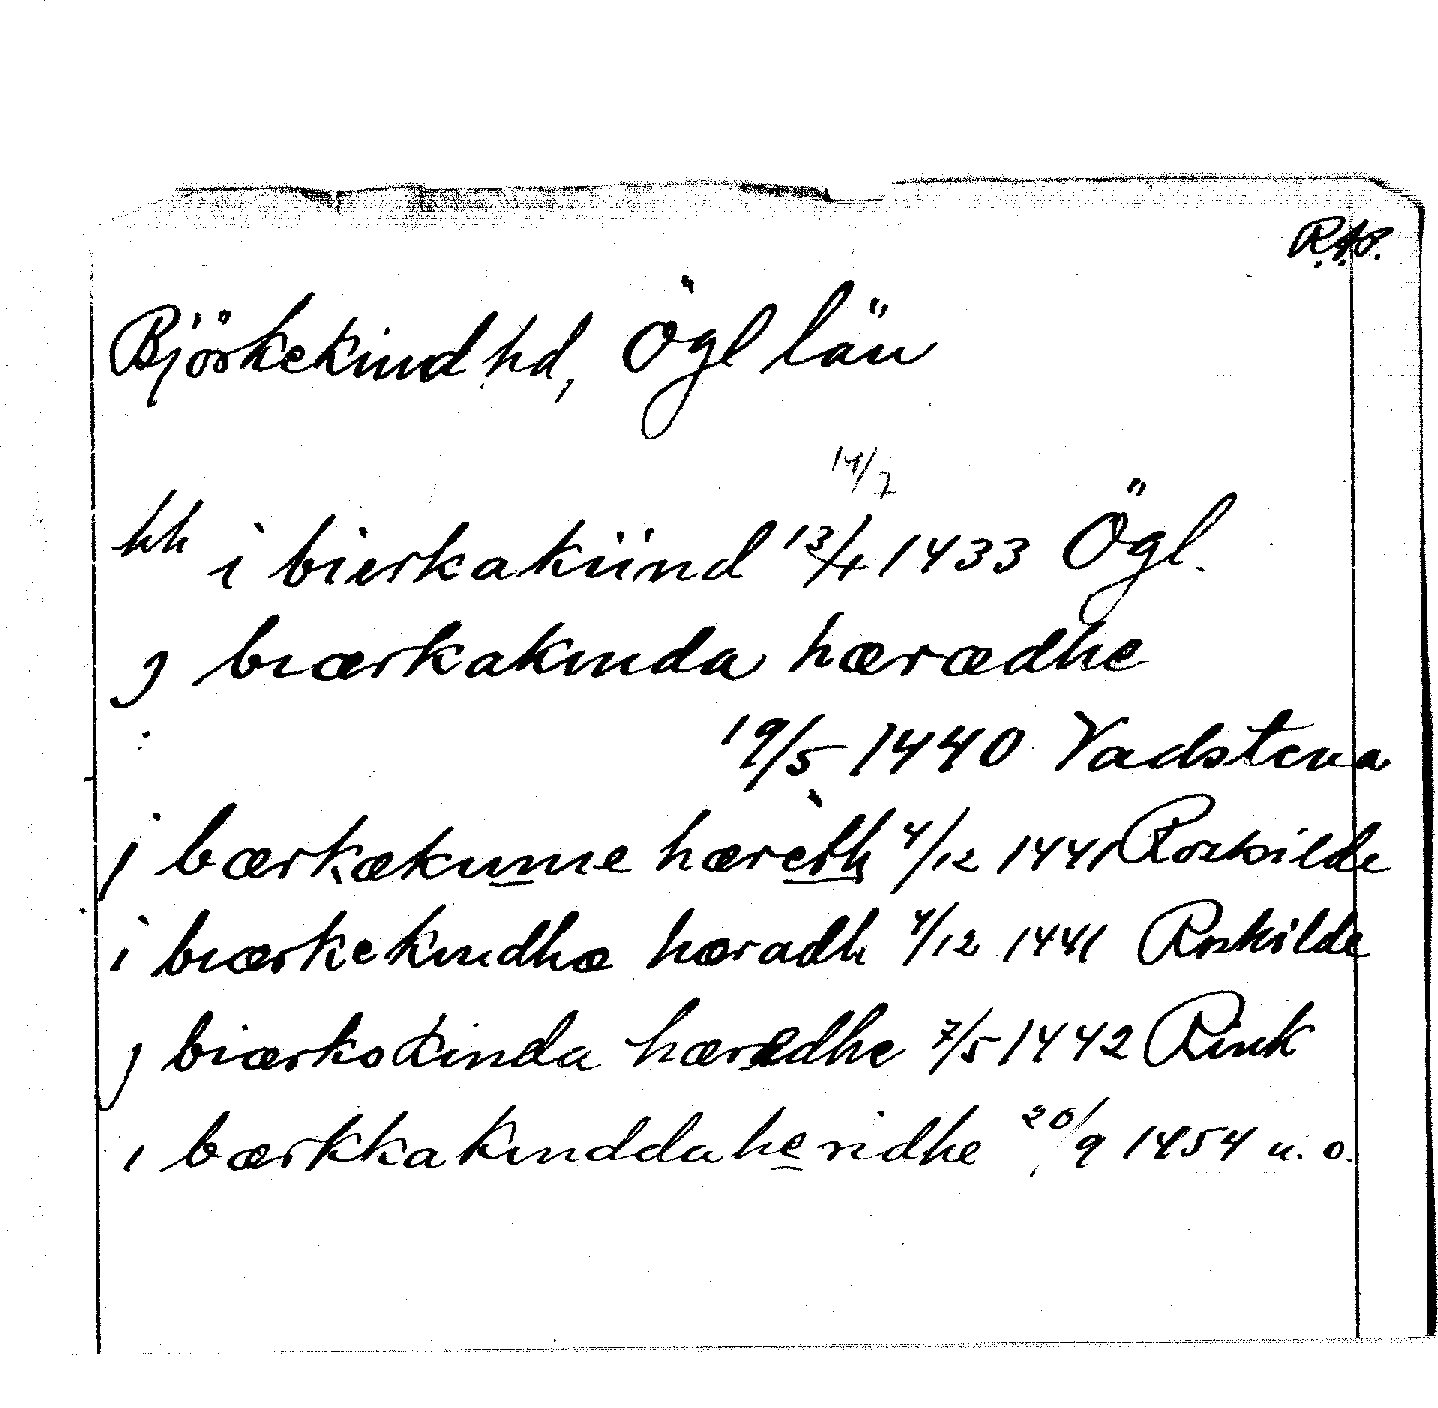 R.A.P.
Björkekind hd, Ögl län
14/7
hh i bierkakiind 13/4 1433 Ögl.
j biærkakinda hærædhe
19/5 1440 Vadstena
j bærkækunne hæreth 4/12 1441 Roskilde
i biærkekindhæ hæradh 4/12 1441 Roskilde
j biærkokinda hæredhe 7/5 1442 Rink
i bærkkakindda heridhe 20/9 1454 u. o.